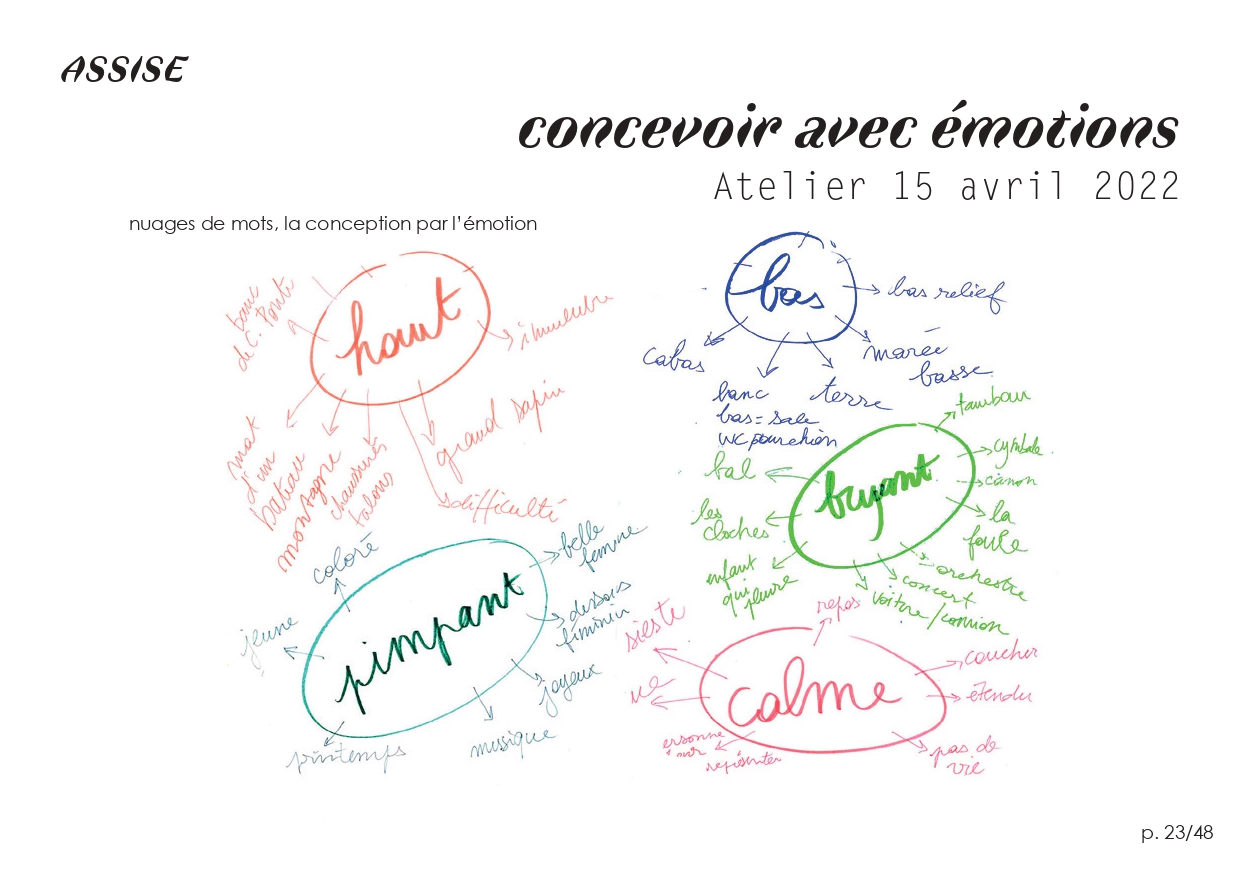 ASSISE
concevoir avec émotions
Atelier 15 avril 2022
nuages de mots, la conception par l'émotion
haut
immeuble
grand sapin
difficulté
chaussures
talons
montagne
mat
d'un
bateau
bas
bas relief
marée
basse
terre
banc
bas = sale
WC pour chien
cabas
bruyant
tambour
cymbale
canon
la
foule
orchestre
concert
voiture / camion
enfant
qui pleure
les
cloches
bal
pimpant
coloré
belle
femme
dessous
féminin
joyeux
musique
printemps
jeune
calme
repos
coucher
étendu
pas de
vie
sieste
p. 23/48